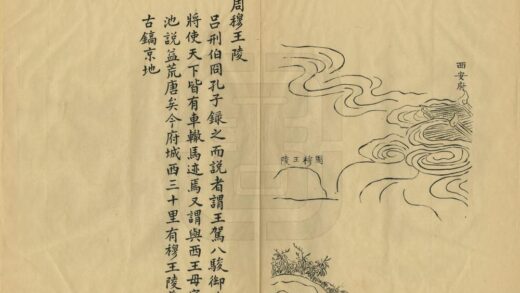 西安府
周穆王陵
周穆王陵
呂刑伯冏孔子錄之而說者謂王駕八駿御
將使天下皆有車轍馬迹焉又謂與西王母
池說益荒唐矣今府城西三十里有穆王陵
古鎬京地